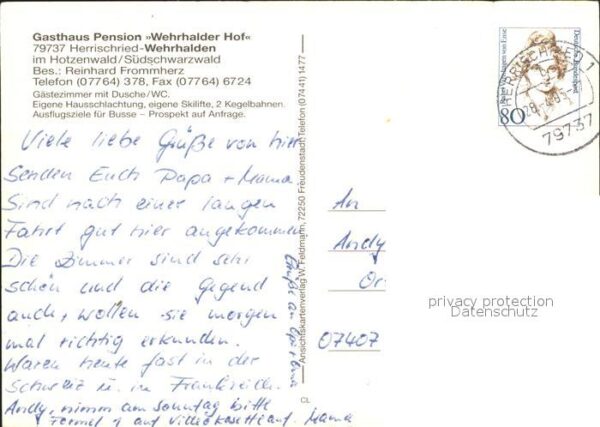 Gasthaus Pension »Wehrhalder Hof«
79737 Herrischried-Wehrhalden
im Hotzenwald/Südschwarzwald
Bes.: Reinhard Frommherz
Telefon (0 77 64) 378, Fax (0 77 64) 6724
Gästezimmer mit Dusche/WC.
Eigene Hausschlachtung, eigene Skilifte, 2 Kegelbahnen.
Ausflugsziele für Busse – Prospekt auf Anfrage.
Viele liebe Grüße von hier
senden Euch Papa + Mama.
Sind nach einer langen
Fahrt gut hier angekommen.
Die Zimmer sind sehr
schön und die Gegend
auch, wollen sie morgen
mal richtig erkunden.
Waren heute fast in der
Schweiz u. in Frankreich.
Andy, nimm am Sonntag bitte
Formel 1 auf Videokasette auf. Mama
Grüße an Opi + Oma
Ansichtskartenverlag W. Feldmann, 72250 Freudenstadt, Telefon (0 74 41) 14 77
CL
Deutsche Bundespost
80
HERRISCHRIED 1
79737
An
Andy
Or
07407
privacy protection
Datenschutz